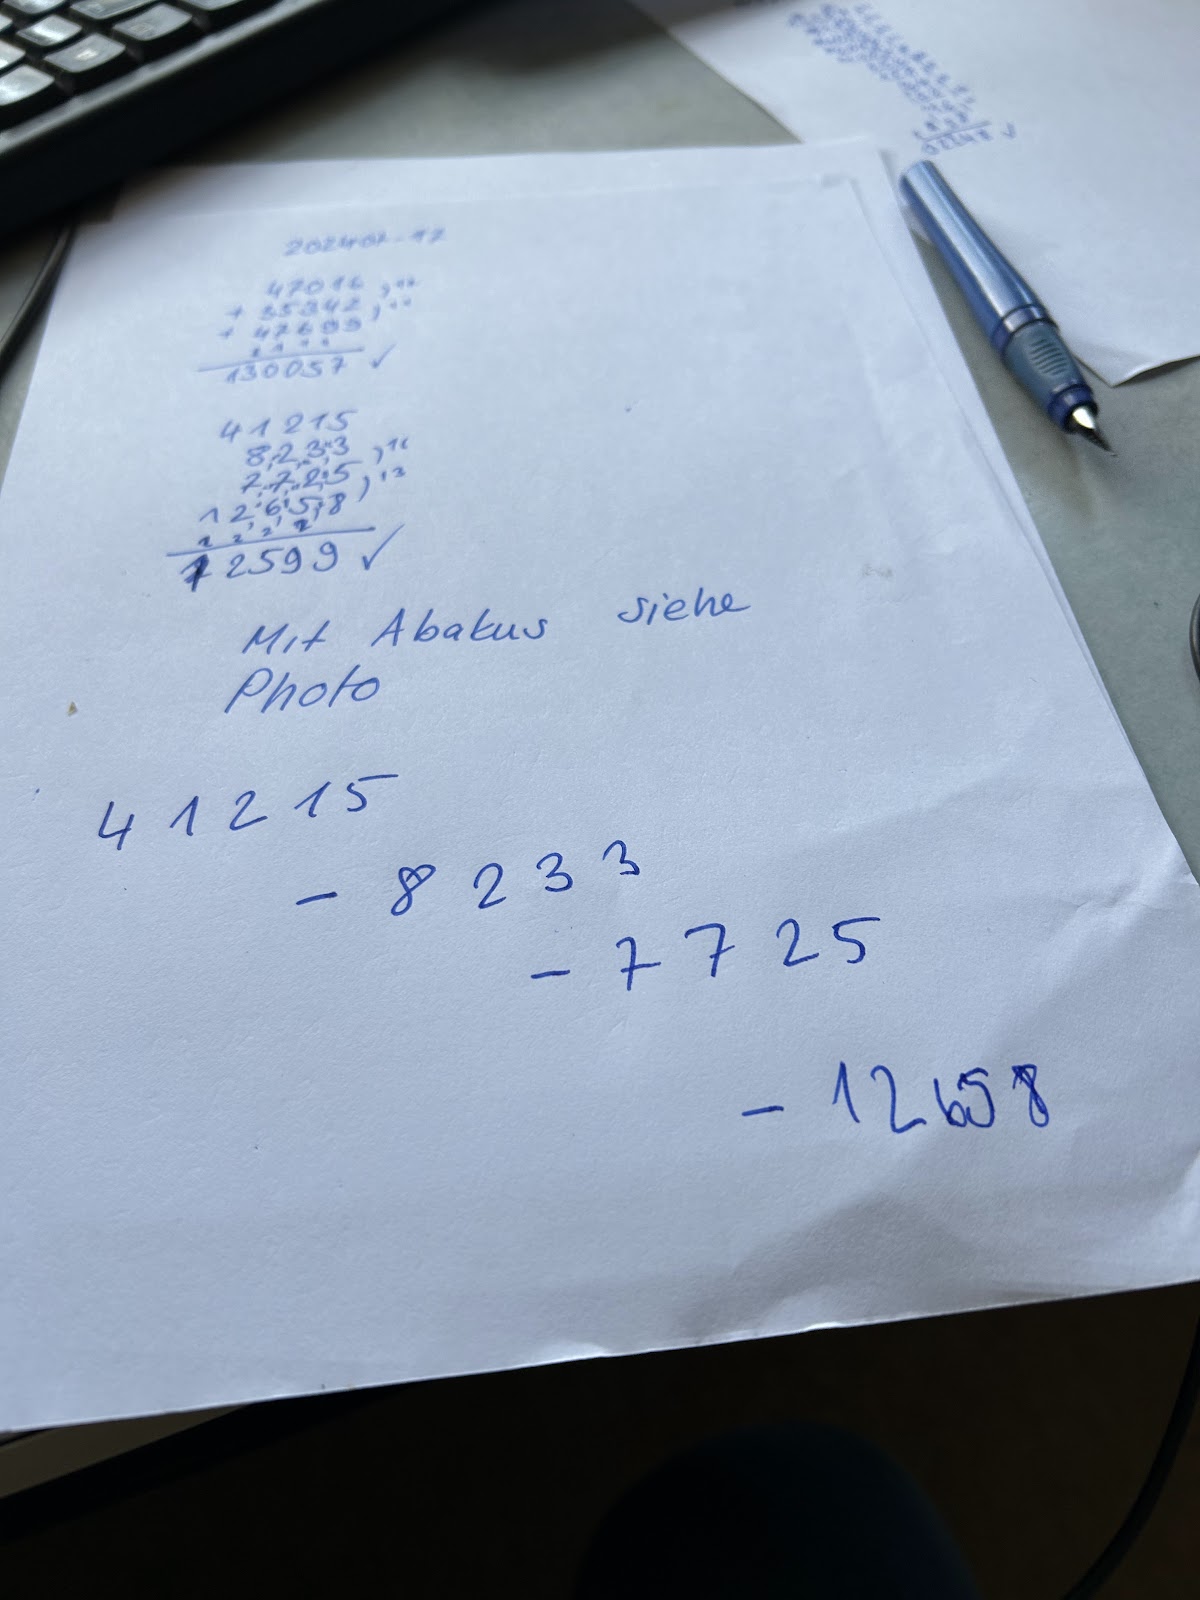 47016
+ 35342
+ 47699
130057 ✓
41215
8233
7725
12658
12599 ✓
Mit Abakus siehe
Photo
41215
- 8233
- 7725
- 12658